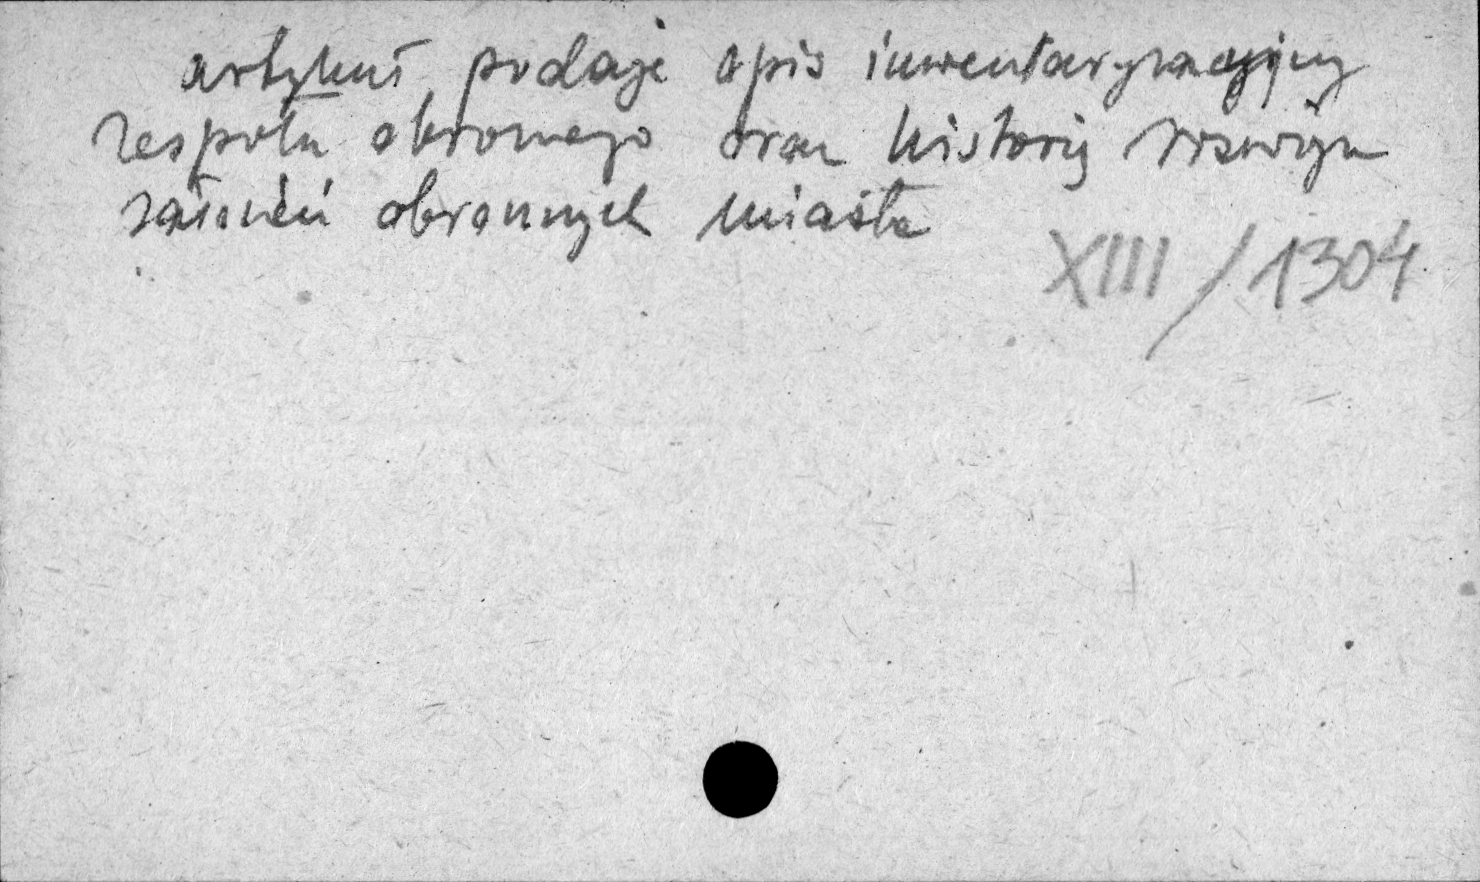 artykuł podaje opis inwentaryzacyjny
zespołu obronnego oraz historię rozwoju
założeń obronnych miasta
XIII / 1304